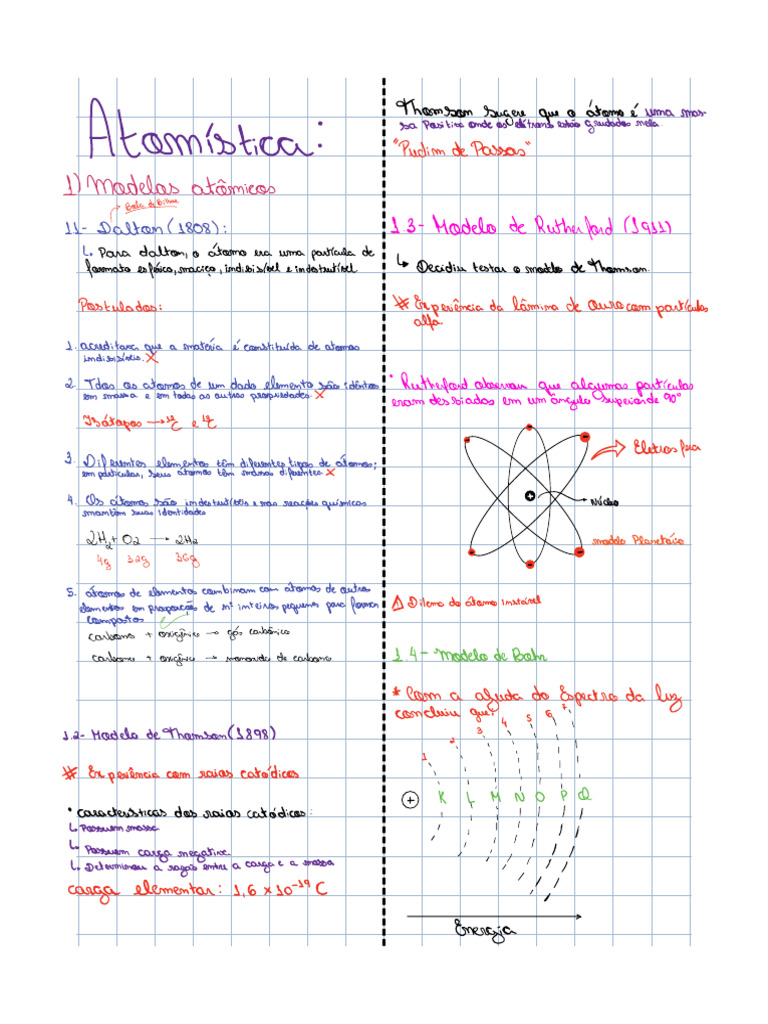 Atomística:
1) Modelos atômicos
Bola de Bilhar
1.1- Dalton (1808):
↳ Para dalton, o átomo era uma partícula de
formato esférico, maciço, indivisível e indestrutível
Postulados:
1. acreditava que a matéria é constituída de átomos
indivisíveis. X
2. Tdos os átomos de um dado elemento são idênticos
em massa e em todas as outras propriedades. X
Isótopos → e
3. Diferentes elementos têm diferentes tipos de átomos;
em particular, seus átomos têm massas diferentes. X
4. Os átomos são indestrutíveis e nas reações químicas
mantêm suas identidades
2H2 + O2 → 2H2
4g 32g 36g
5. átomos de elementos combinam com átomos de outros
elementos em proporção de nº inteiros pequenos para formar
compostos
carbono + oxigênio → gás carbônico
carbono + oxigênio → monoxido de carbono
1.2- Modelo de Thomson (1898)
# Experiência com raios catódicos
• características dos raios catódicos:
↳ Possuem massa
↳ Possuem carga negativa.
↳ Determinou a razão entre a carga e a massa
carga elementar: 1,6 x 10⁻¹⁹ C
Thomson sugere que o átomo é uma mas-
sa Positiva onde os elétrons estão grudados nela
"Pudim de Passas"
1.3- Modelo de Rutherford (1911)
↳ Decidiu testar o modelo de Thomson.
# Experiência da lâmina de ouro com partículas
alfa.
• Rutherford observou que algumas partículas
eram desviados em um ângulo superior de 90°
Eletrosfera
Núcleo
modelo Planetário
Dilema do átomo instável
1.4- Modelo de Bohr
* Com a ajuda do Espectro da luz
concluiu que:
1 2 3 4 5 6 7
+ K L M N O P Q
Energia